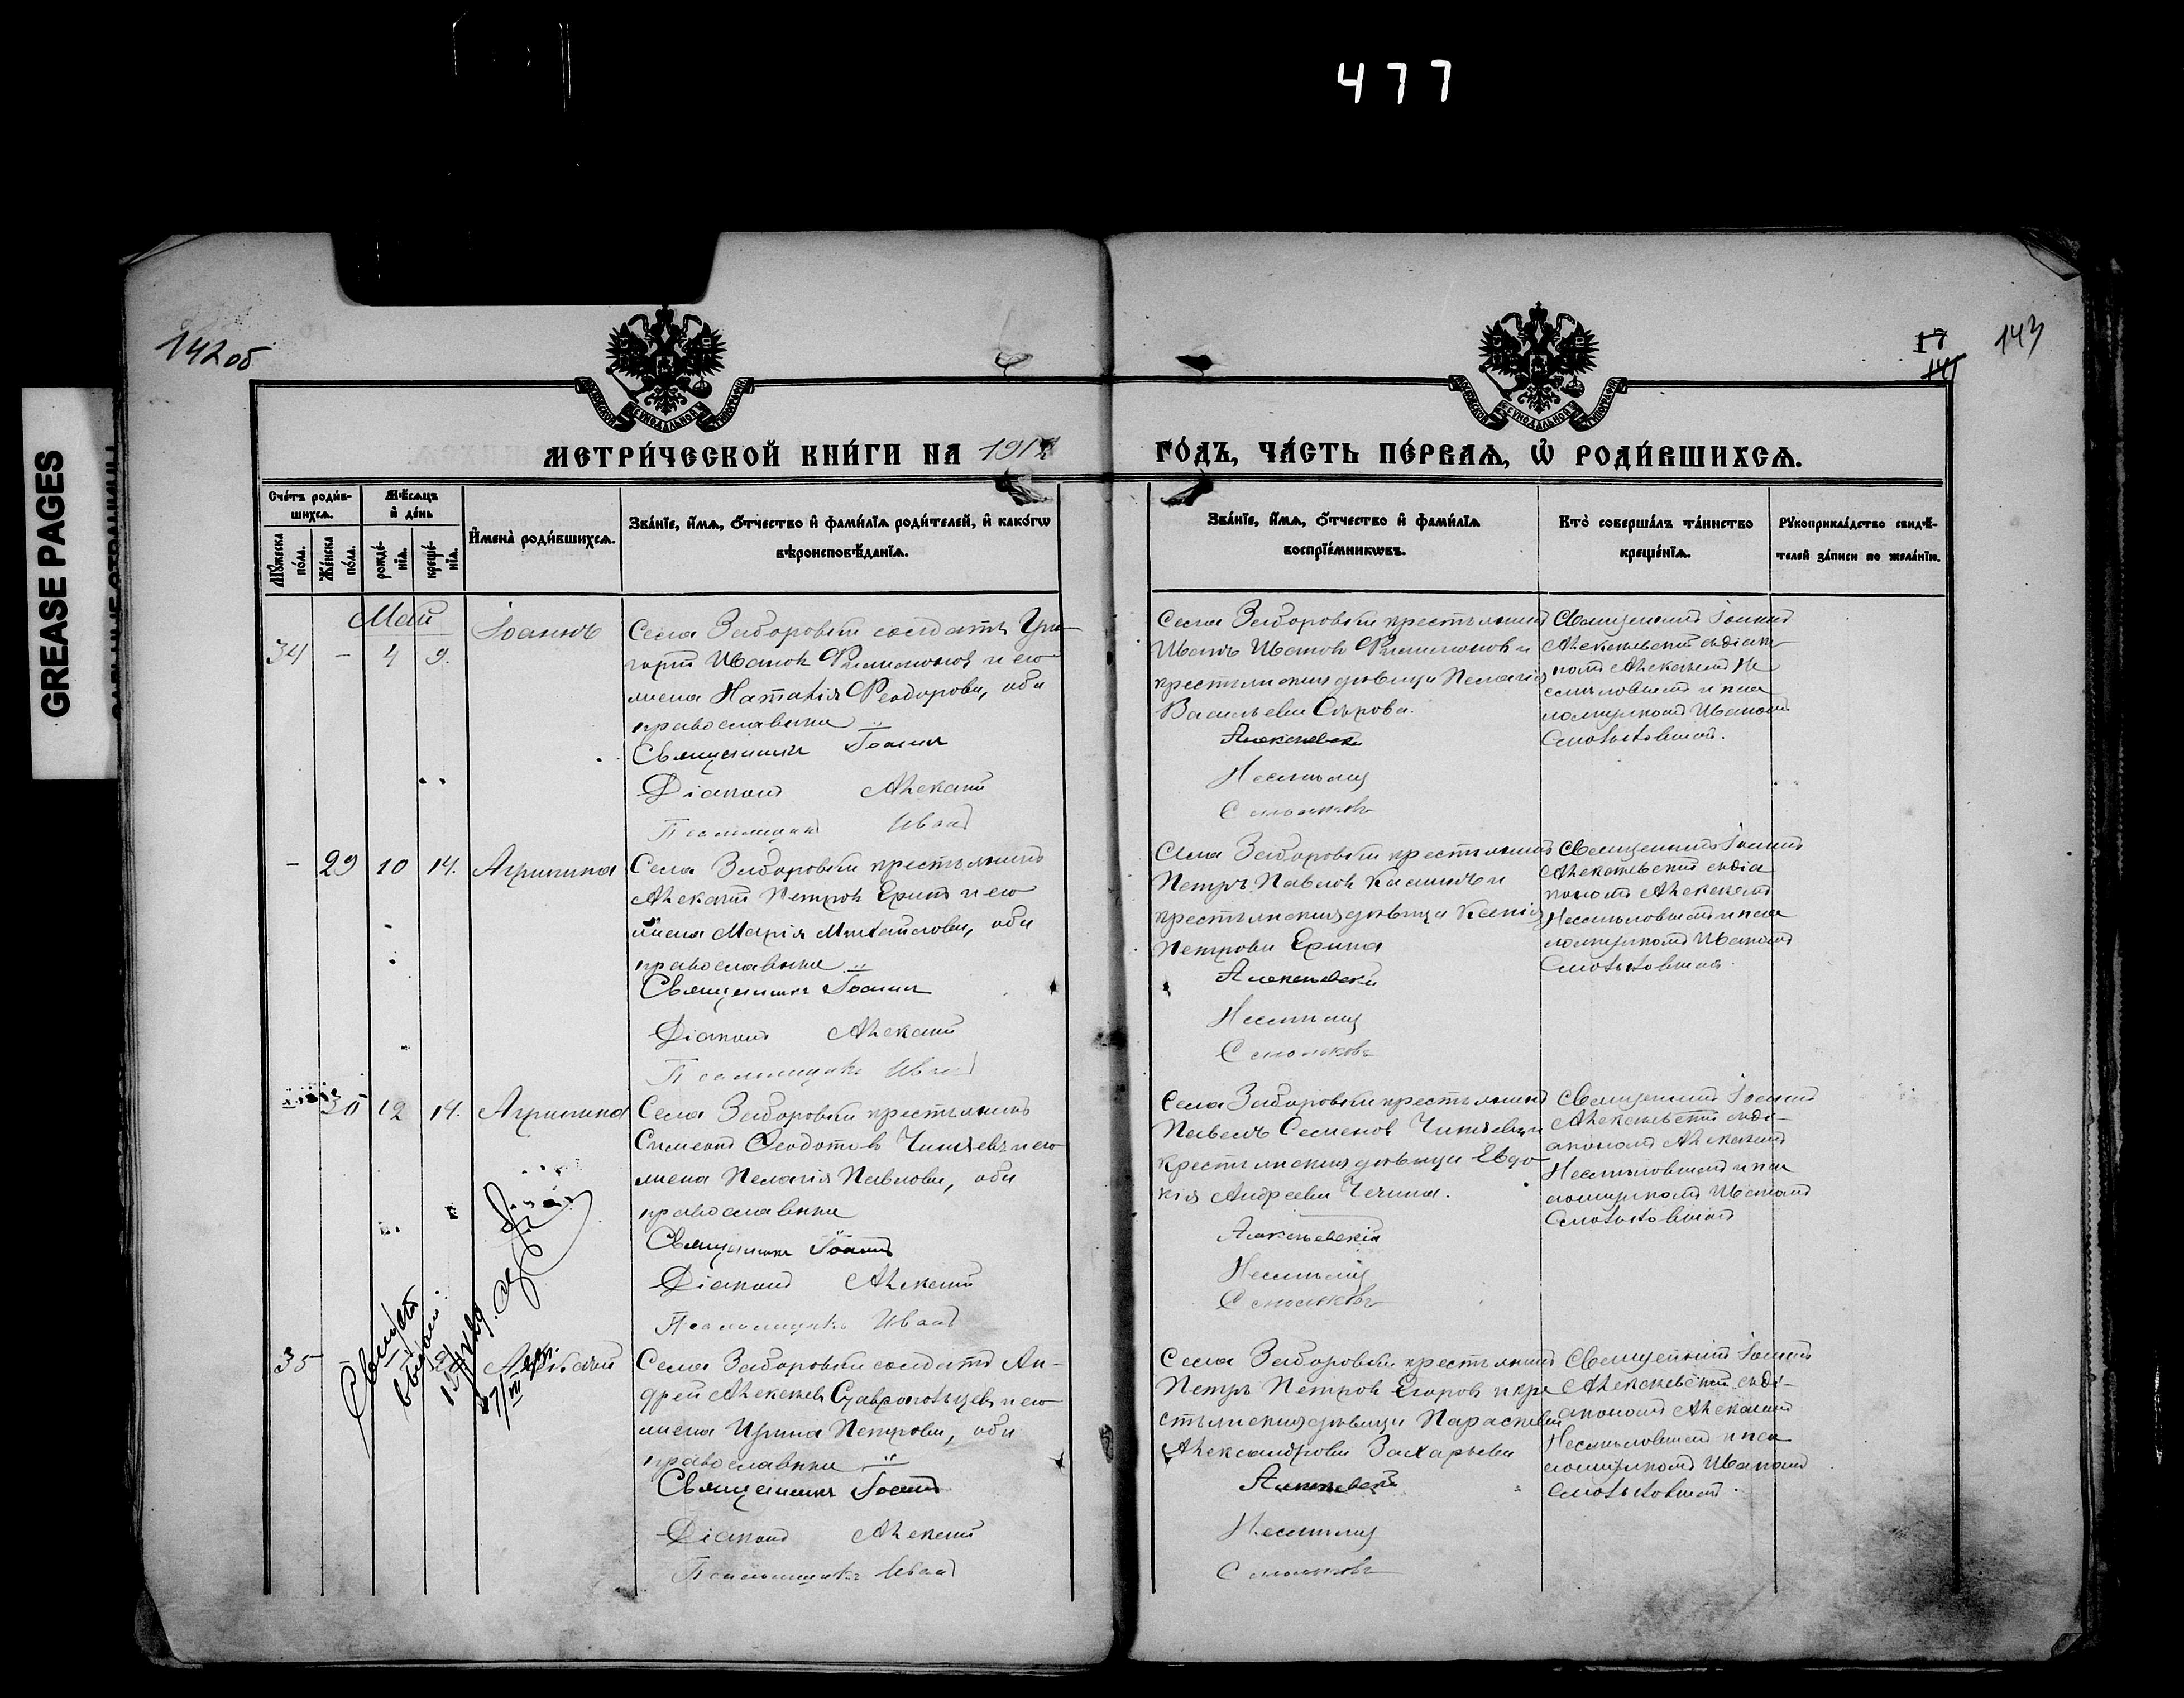 477
GREASE PAGES
142об
17
141
143
МЕТРИ́ЧЕСКОЙ КНИ́ГИ НА 191
ГО́ДЪ, ЧА́СТЬ ПЕ́РВАѦ, Ѽ РОДИ́ВШИХСѦ.
Сче́тъ роди́в-
шихсѧ.
Мѣ́сѧцъ
и҆ де́нь
Мꙋ́жеска
по́ла.
Же́нска
по́ла.
рожде́-
нїѧ.
креще́-
нїѧ.
И҆мена̀ роди́вшихсѧ.
Зва́нїе, и҆́мѧ, ѻ҆́тчество и҆ фами́лїѧ роди́телей, и҆ како́гѡ
вѣроисповѣ́данїѧ.
Зва́нїе, и҆́мѧ, ѻ҆́тчество и҆ фами́лїѧ
воспрїе́мникѡвъ.
Кто̀ соверша́лъ та́инство
креще́нїѧ.
Рꙋкоприкла́дство свидѣ́-
телей за́писи по жела́нїю.
Май
34 - 4 9.
Іоаннъ
Села Заборовки солдатъ Гри-
горій Ивановъ Филимоновъ и его
жена Наталія Феодорова, оба
православные
Священникъ Іоаннъ
Діаконъ Алексій
Псаломщикъ Иванъ
Села Заборовки крестьянинъ
Иванъ Ивановъ Филимоновъ и
крестьянская дѣвица Пелагія
Васильева Сѣрова.
Алексѣевскій
Несмѣловъ
Смольковъ
Священникъ Іоаннъ
Алексѣевскій съ діако-
номъ Алексѣемъ Не
смѣловымъ и пса
ломщикомъ Иваномъ
- 29 10 14. Агрипина
Села Заборовки крестьянинъ
Алексій Петровъ Еринъ и его
жена Марія Михайлова, оба
православные
Священникъ Іоаннъ
Діаконъ Алексій
Псаломщикъ Иванъ
Села Заборовки крестьянинъ
Петръ Павловъ Калинъ и
крестьянская дѣвица Ксенія
Петрова Ерина
Алексѣевскій
Несмѣловъ
Смольковъ
Священникъ Іоаннъ
Алексѣевскій съ діа
кономъ Алексѣемъ
Несмѣловымъ и пса
ломщикомъ Иваномъ
30 12 14. Агрипина
Села Заборовки крестьянинъ
Симеонъ Феодотовъ Чиняевъ и его
жена Пелагія Павлова, оба
православные
Священникъ Іоаннъ
Діаконъ Алексій
Псаломщикъ Иванъ
Села Заборовки крестьянинъ
Павелъ Семеновъ Чиняевъ и
крестьянская дѣвица Евдо-
кія Андреева Чечина.
Алексѣевскій
Несмѣловъ
Смольковъ
Священникъ Іоаннъ
Алексѣевскій съ ді-
акономъ Алексѣемъ
Несмѣловымъ и пса
ломщикомъ Иваномъ
35
Села Заборовки солдатъ Ан-
дрей Алексѣевъ Ставропольцевъ и его
жена Ирина Петрова, оба
православные
Священникъ Іоаннъ
Діаконъ Алексій
Псаломщикъ Иванъ
Села Заборовки крестьянинъ
Петръ Петровъ Егоровъ и кре
стьянская дѣвица Параскева
Александрова Захарьева
Алексѣевскій
Несмѣловъ
Смольковъ
Священникъ Іоаннъ
Алексѣевскій съ ді-
акономъ Алексѣемъ
Несмѣловымъ и пса
ломщикомъ Иваномъ